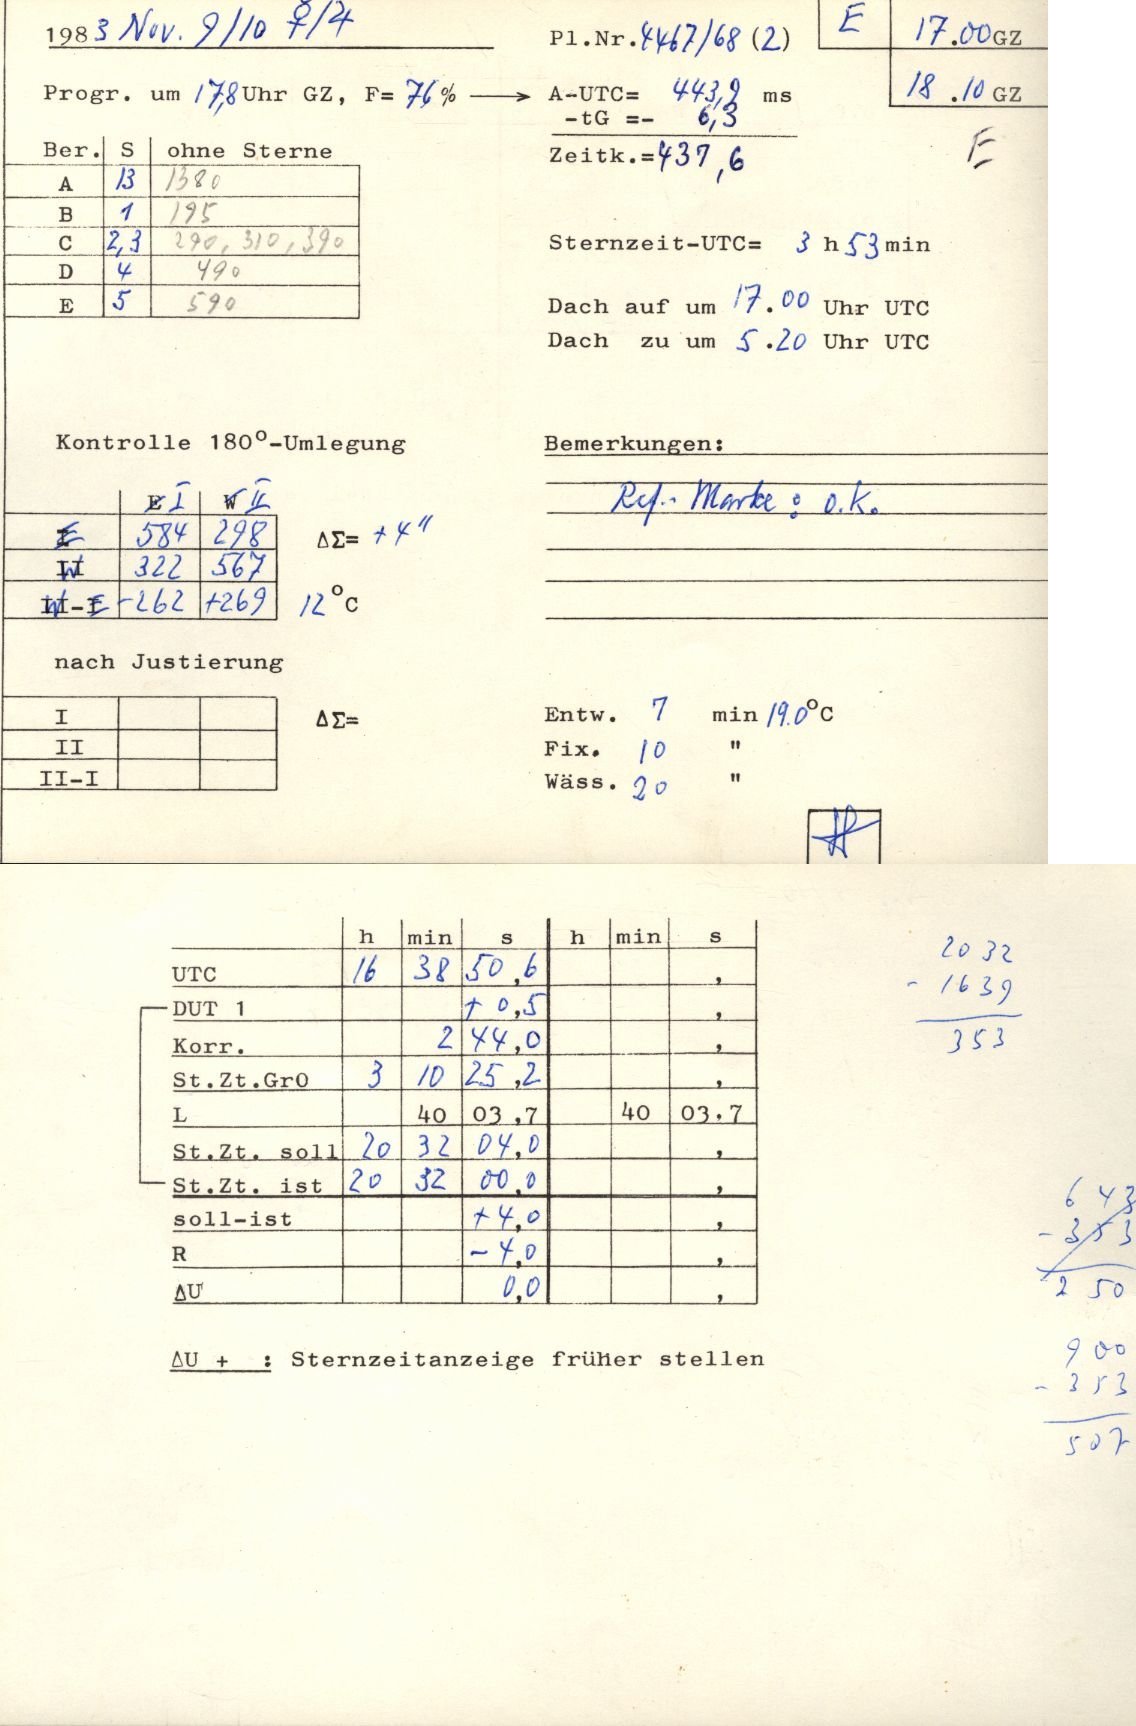 1983 Nov. 9/10 ☿/♃
Pl.Nr. 4467/68 (2)
E 17.00 GZ
18.10 GZ
Progr. um 17,8 Uhr GZ, F= 76 % ⟶ A-UTC= 443,9 ms
-tG =- 6,3
Zeitk.= 437,6
E
Ber. S ohne Sterne
A 13 1380
B 1 195
C 2,3 290, 310, 390
D 4 490
E 5 590
Sternzeit-UTC= 3 h 53 min
Dach auf um 17.00 Uhr UTC
Dach zu um 5.20 Uhr UTC
Kontrolle 180°-Umlegung
Bemerkungen:
Ref.-Marke: o.k.
E I W II
I E 584 298 ΔΣ= +4"
II W 322 567
II-I W-E -262 +269 12 °C
nach Justierung
I ΔΣ=
II
II-I
Entw. 7 min 19.0°C
Fix. 10 "
Wäss. 20 "
h min s h min s
UTC 16 38 50,6 ,
DUT 1 + 0,5 ,
Korr. 2 44,0 ,
St.Zt.Gr0 3 10 25,2 ,
L 40 03,7 40 03,7
St.Zt. soll 20 32 04,0 ,
St.Zt. ist 20 32 00,0 ,
soll-ist +4,0 ,
R -4,0 ,
ΔU 0,0 ,
ΔU + : Sternzeitanzeige früher stellen
2032
- 1639
353
643
- 353
250
900
- 353
507